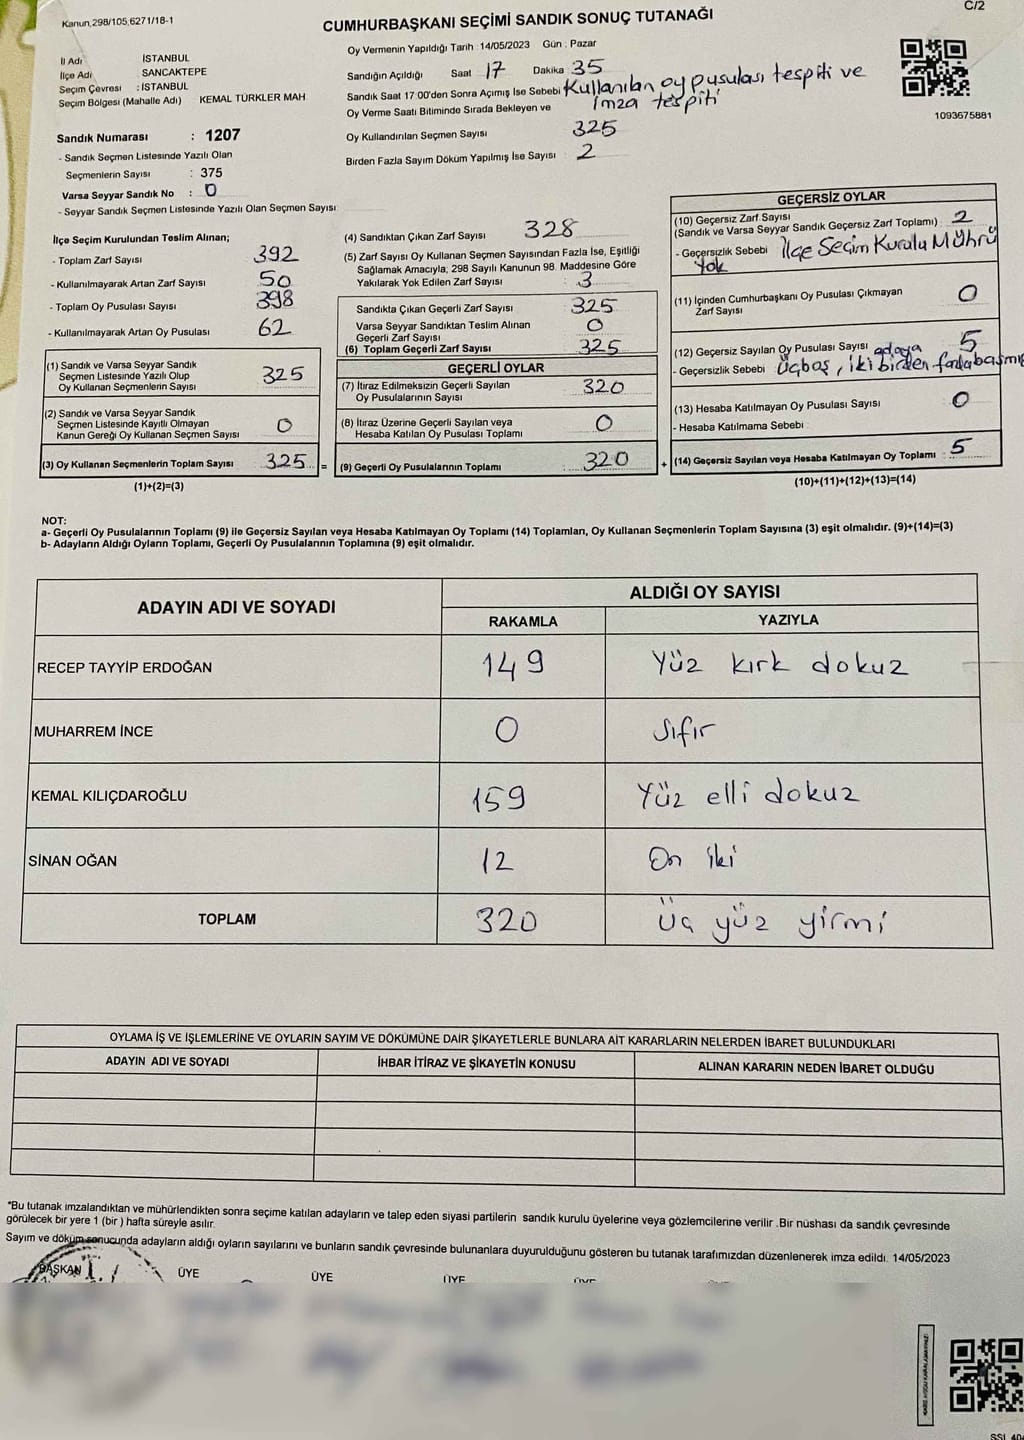 Kanun,298/105,6271/18-1
CUMHURBAŞKANI SEÇİMİ SANDIK SONUÇ TUTANAĞI
C/2
İl Adı İSTANBUL
İlçe Adı SANCAKTEPE
Seçim Çevresi : İSTANBUL
Seçim Bölgesi (Mahalle Adı) KEMAL TÜRKLER MAH
Oy Vermenin Yapıldığı Tarih : 14/05/2023 Gün : Pazar
Sandığın Açıldığı Saat 17 Dakika 35
Sandık Saat 17:00'den Sonra Açımış İse Sebebi Kullanılan oy pusulası tespiti ve
imza tespiti
Oy Verme Saati Bitiminde Sırada Bekleyen ve
Oy Kullandırılan Seçmen Sayısı 325
Birden Fazla Sayım Döküm Yapılmış İse Sayısı : 2
1093675881
Sandık Numarası : 1207
- Sandık Seçmen Listesinde Yazılı Olan
Seçmenlerin Sayısı : 375
Varsa Seyyar Sandık No : 0
- Seyyar Sandık Seçmen Listesinde Yazılı Olan Seçmen Sayısı
İlçe Seçim Kurulundan Teslim Alınan;
- Toplam Zarf Sayısı 392
- Kullanılmayarak Artan Zarf Sayısı 50
- Toplam Oy Pusulası Sayısı 398
- Kullanılmayarak Artan Oy Pusulası 62
(1) Sandık ve Varsa Seyyar Sandık
Seçmen Listesinde Yazılı Olup
Oy Kullanan Seçmenlerin Sayısı 325
(2) Sandık ve Varsa Seyyar Sandık
Seçmen Listesinde Kayıtlı Olmayan
Kanun Gereği Oy Kullanan Seçmen Sayısı 0
(3) Oy Kullanan Seçmenlerin Toplam Sayısı 325 =
(1)+(2)=(3)
(4) Sandıktan Çıkan Zarf Sayısı 328
(5) Zarf Sayısı Oy Kullanan Seçmen Sayısından Fazla İse, Eşitliği
Sağlamak Amacıyla, 298 Sayılı Kanunun 98. Maddesine Göre
Yakılarak Yok Edilen Zarf Sayısı : 3
Sandıkta Çıkan Geçerli Zarf Sayısı 325
Varsa Seyyar Sandıktan Teslim Alınan
Geçerli Zarf Sayısı 0
(6) Toplam Geçerli Zarf Sayısı 325
GEÇERLİ OYLAR
(7) İtiraz Edilmeksizin Geçerli Sayılan
Oy Pusulalarının Sayısı 320
(8) İtiraz Üzerine Geçerli Sayılan veya
Hesaba Katılan Oy Pusulası Toplamı 0
(9) Geçerli Oy Pusulalarının Toplamı : 320 +
GEÇERSİZ OYLAR
(10) Geçersiz Zarf Sayısı
(Sandık ve Varsa Seyyar Sandık Geçersiz Zarf Toplamı) 2
- Geçersizlik Sebebi İlçe Seçim Kurulu Mührü
Yok
(11) İçinden Cumhurbaşkanı Oy Pusulası Çıkmayan
Zarf Sayısı 0
(12) Geçersiz Sayılan Oy Pusulası Sayısı 5
adaya
- Geçersizlik Sebebi Üçboş, iki birden fazla basmış
(13) Hesaba Katılmayan Oy Pusulası Sayısı 0
- Hesaba Katılmama Sebebi :
(14) Geçersiz Sayılan veya Hesaba Katılmayan Oy Toplamı : 5
(10)+(11)+(12)+(13)=(14)
NOT:
a- Geçerli Oy Pusulalarının Toplamı (9) ile Geçersiz Sayılan veya Hesaba Katılmayan Oy Toplamı (14) Toplamları, Oy Kullanan Seçmenlerin Toplam Sayısına (3) eşit olmalıdır. (9)+(14)=(3)
b- Adayların Aldığı Oyların Toplamı, Geçerli Oy Pusulalarının Toplamına (9) eşit olmalıdır.
ADAYIN ADI VE SOYADI
ALDIĞI OY SAYISI
RAKAMLA YAZIYLA
RECEP TAYYİP ERDOĞAN 149 Yüz kırk dokuz
MUHARREM İNCE 0 Sıfır
KEMAL KILIÇDAROĞLU 159 Yüz elli dokuz
SİNAN OĞAN 12 On iki
TOPLAM 320 Üç yüz yirmi
OYLAMA İŞ VE İŞLEMLERİNE VE OYLARIN SAYIM VE DÖKÜMÜNE DAİR ŞİKAYETLERLE BUNLARA AİT KARARLARIN NELERDEN İBARET BULUNDUKLARI
ADAYIN ADI VE SOYADI İHBAR İTİRAZ VE ŞİKAYETİN KONUSU ALINAN KARARIN NEDEN İBARET OLDUĞU
*Bu tutanak imzalandıktan ve mühürlendikten sonra seçime katılan adayların ve talep eden siyasi partilerin sandık kurulu üyelerine veya gözlemcilerine verilir .Bir nüshası da sandık çevresinde
görülecek bir yere 1 (bir ) hafta süreyle asılır.
Sayım ve döküm sonucunda adayların aldığı oyların sayılarını ve bunların sandık çevresinde bulunanlara duyurulduğunu gösteren bu tutanak tarafımızdan düzenlenerek imza edildi. 14/05/2023
BAŞKAN ÜYE ÜYE ÜYE ÜYE